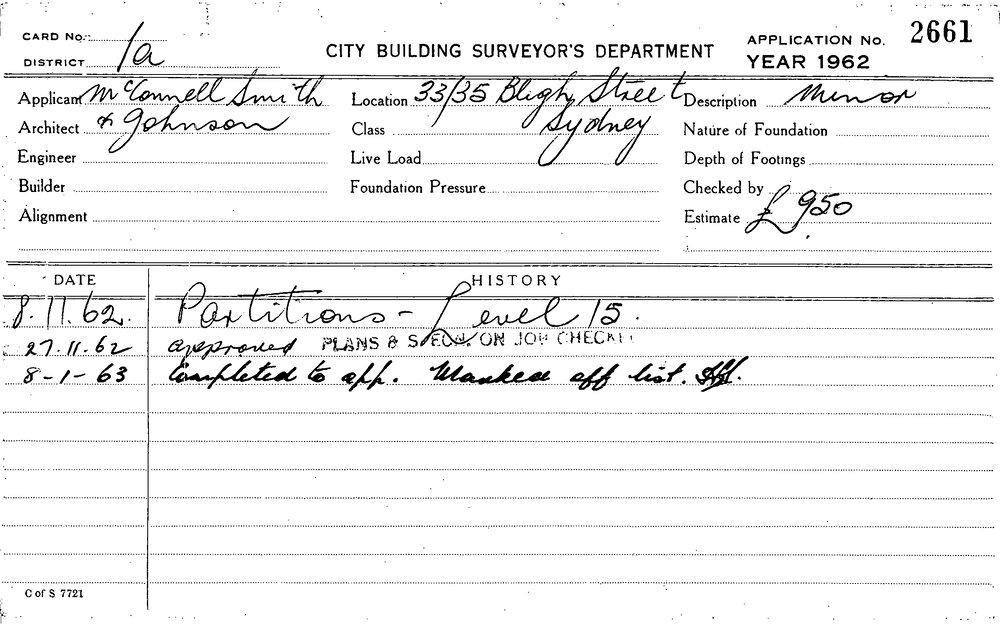 CARD No.
DISTRICT 1a
CITY BUILDING SURVEYOR'S DEPARTMENT
APPLICATION No. 2661
YEAR 1962
Applicant McConnell Smith
Location 33/35 Bligh Street
Description Minor
Architect & Johnson
Class Sydney
Nature of Foundation
Engineer
Live Load
Depth of Footings
Builder
Foundation Pressure
Checked by
Alignment
Estimate £950
DATE HISTORY
8.11.62. Partitions - Level 15.
27.11.62 approved PLANS & SPECN. ON JOB CHECK
8-1-63 Completed to app. Marked off list.
C of S 7721